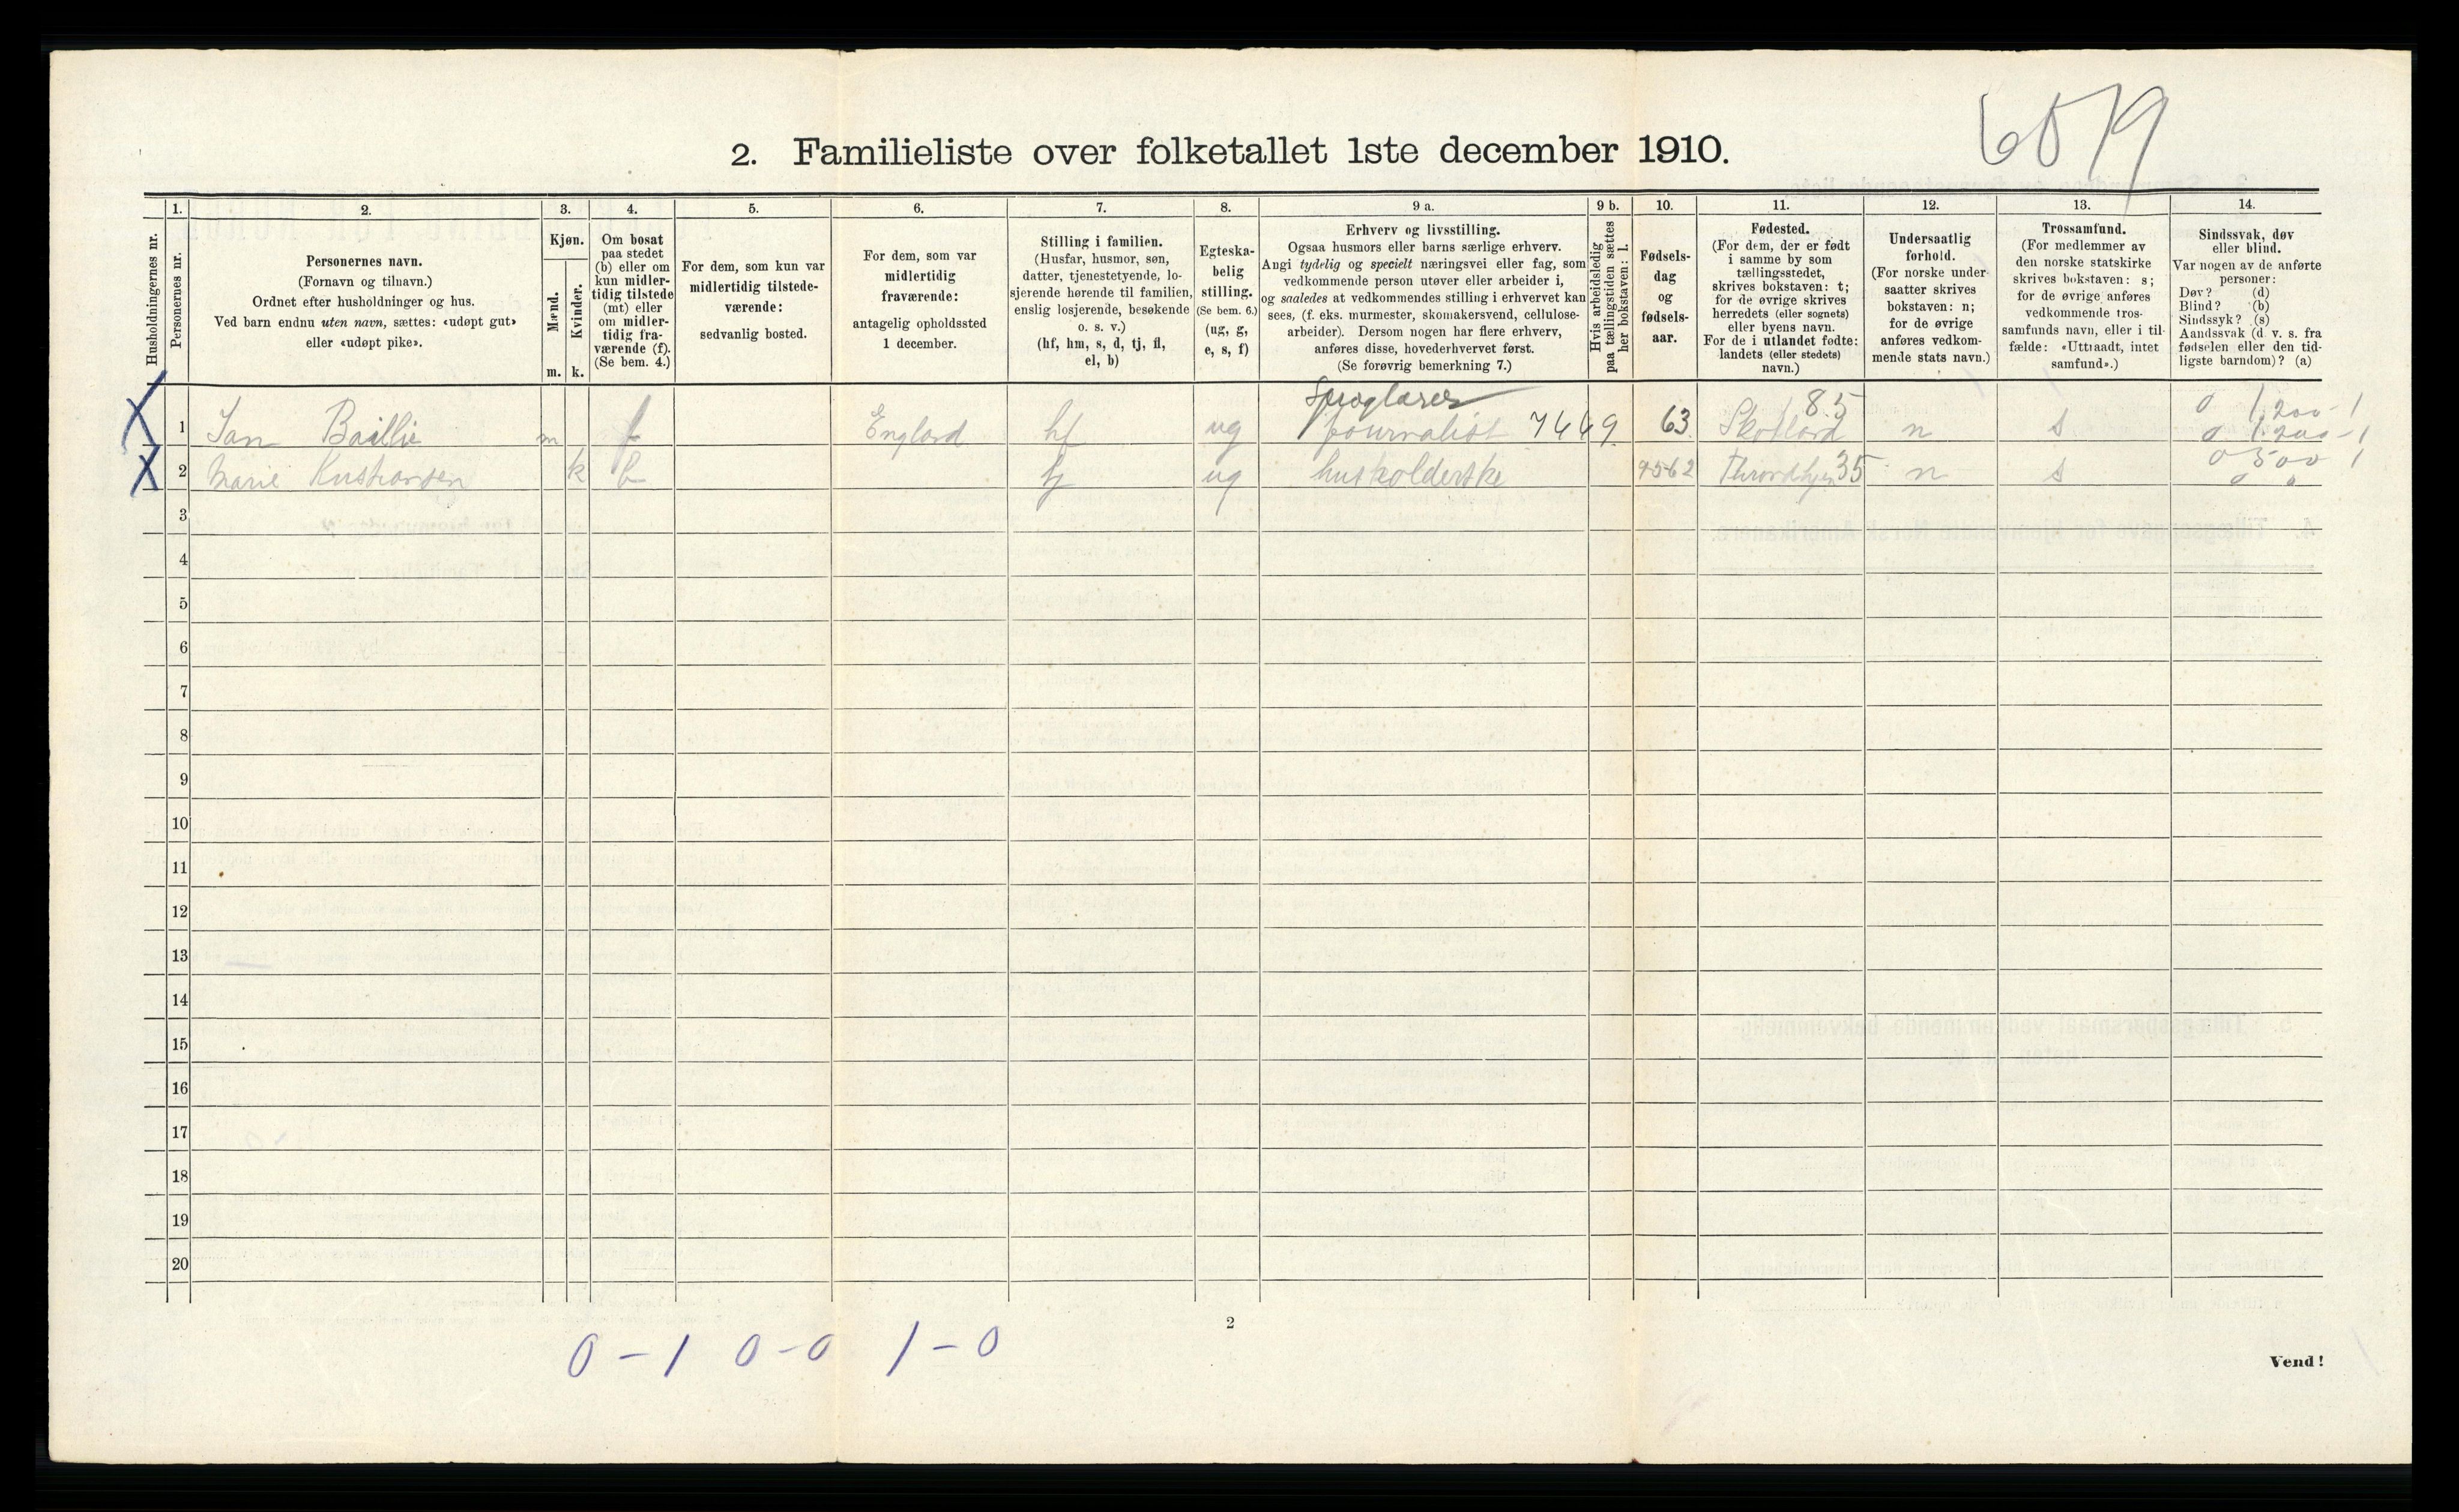 6079
2. Familieliste over folketallet 1ste december 1910.
Husholdningernes nr.
1.
Personernes nr.
2.
Personernes navn.
(Fornavn og tilnavn.)
Ordnet efter husholdninger og hus.
Ved barn endnu uten navn, sættes: «udøpt gut»
eller «udøpt pike».
3.
Kjøn.
Mænd.
Kvinder.
m. k.
4.
Om bosat
paa stedet
(b) eller om
kun midler-
tidig tilstede
(mt) eller
om midler-
tidig fra-
værende (f).
(Se bem. 4.)
5.
For dem, som kun var
midlertidig tilstede-
værende:
sedvanlig bosted.
6.
For dem, som var
midlertidig
fraværende:
antagelig opholdssted
1 december.
7.
Stilling i familien.
(Husfar, husmor, søn,
datter, tjenestetyende, lo-
sjerende hørende til familien,
enslig losjerende, besøkende
o. s. v.)
(hf, hm, s, d, tj, fl,
el, b)
8.
Egteska-
belig
stilling.
(Se bem. 6.)
(ug, g,
e, s, f)
9 a.
Erhverv og livsstilling.
Ogsaa husmors eller barns særlige erhverv.
Angi tydelig og specielt næringsvei eller fag, som
vedkommende person utøver eller arbeider i,
og saaledes at vedkommendes stilling i erhvervet kan
sees, (f. eks. murmester, skomakersvend, cellulose-
arbeider). Dersom nogen har flere erhverv,
anføres disse, hovederhvervet først.
(Se forøvrig bemerkning 7.)
9 b.
Hvis arbeidsledig
paa tællingstiden sættes
her bokstaven: l.
10.
Fødsels-
dag
og
fødsels-
aar.
11.
Fødested.
(For dem, der er født
i samme by som
tællingsstedet,
skrives bokstaven: t;
for de øvrige skrives
herredets (eller sognets)
eller byens navn.
For de i utlandet fødte:
landets (eller stedets)
navn.)
12.
Undersaatlig
forhold.
(For norske under-
saatter skrives
bokstaven: n;
for de øvrige
anføres vedkom-
mende stats navn.)
13.
Trossamfund.
(For medlemmer av
den norske statskirke
skrives bokstaven: s;
for de øvrige anføres
vedkommende tros-
samfunds navn, eller i til-
fælde: «Uttraadt, intet
samfund».)
14.
Sindssvak, døv
eller blind.
Var nogen av de anførte
personer:
Døv? (d)
Blind? (b)
Sindssyk? (s)
Aandssvak (d. v. s. fra
fødselen eller den tid-
ligste barndom)? (a)
Sproglærer 85 0 1,200-1
X 1 Jan Baillie m f England hf ug journalist 7449 63 Skotland n s 0 1.200-1
0 500 1
X 2 Marie Kristiansen k b tj ug husholderske 9-5-62 Throndhjem 35 n s 0 0
3
4
5
6
7
8
9
10
11
12
13
14
15
16
17
18
19
20
2
0-1 0-0 1-0
Vend!